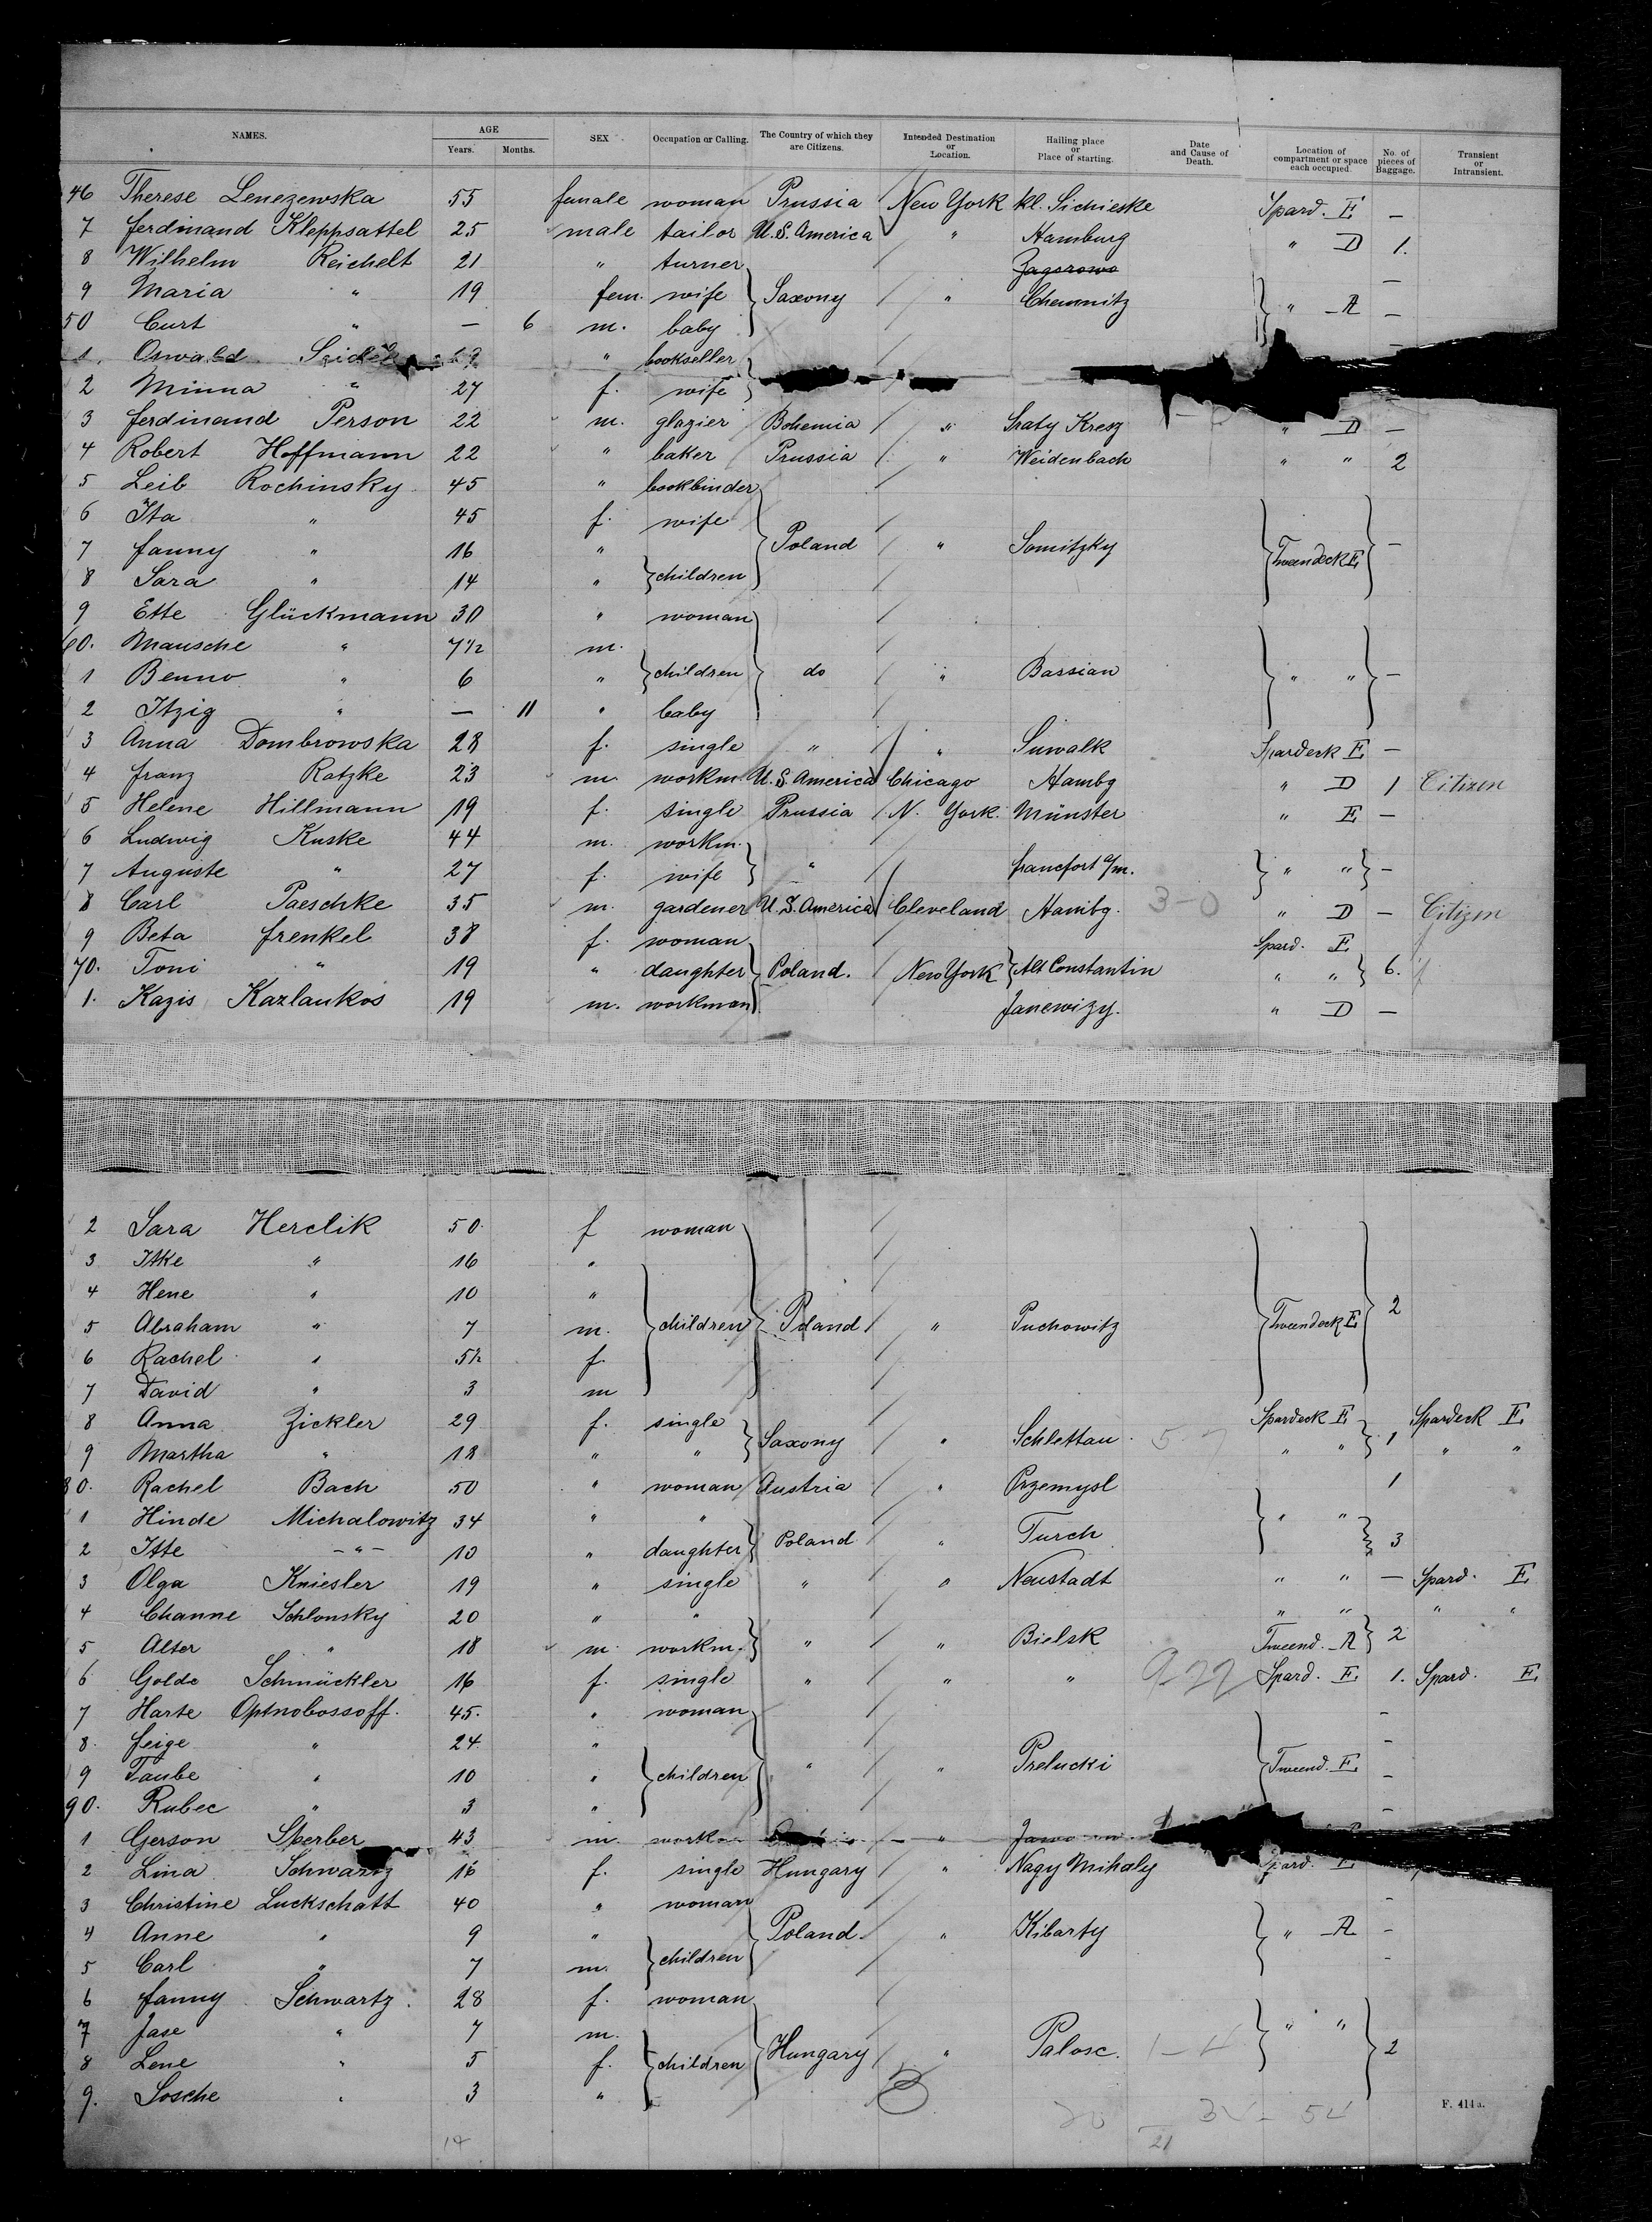 NAMES. AGE Years. Months. SEX Occupation or Calling. The Country of which they are Citizens. Intended Destination or Location. Hailing place or Place of starting. Date and Cause of Death. Location of compartment or space each occupied. No. of pieces of Baggage. Transient or Intransient.
46 Therese Lenezewska 55 female woman Prussia New York kl. Sichieske Spard. E —
7 Ferdinand Kleppsattel 25 male tailor U.S. America " Hamburg " D 1.
8 Wilhelm Reichelt 21 " turner Zagorowo
9 Maria " 19 fem. wife Saxony " Chemnitz " A —
50 Curt " — 6 m. baby —
1. Oswald " bookseller
2 Minna " 27 f. wife
3 Ferdinand Person 22 m. glazier Bohemia " Straty Kresz " D —
4 Robert Hoffmann 22 " baker Prussia " Weidenbach " " 2
5 Leib Rochinsky 45 " bookbinder
6 Ita " 45 f. wife
7 Fanny " 16 " children Poland " Somitzky Tweendeck E —
8 Sara " 14 "
9 Ette Glückmann 30 " woman
60. Mausche " 7 1/2 m.
1 Benno " 6 " children do " Bassian " " —
2 Itzig " — 11 " baby
3 Anna Dombrowska 28 f. single " " Suwalk Spardeck E —
4 Franz Ratzke 23 m. workm. U.S. America Chicago Hambg " D 1 Citizen
5 Helene Hillmann 19 f. single Prussia N. York. Münster " E —
6 Ludwig Kuske 44 m. workm.
7 Auguste " 27 f. wife " Francfort a/m. " " —
8 Carl Paeschke 35 m. gardener U.S. America Cleveland Hambg. 3-0 " D — Citizen
9 Beta Frenkel 38 f. woman Spard. E
70. Toni " 19 " daughter Poland. New York Alt Constantin " " 6.
1. Kazis Kazlaukos 19 m. workman Janewizy. " D —
2 Sara Herclik 50. f woman
3 Itke " 16 "
4 Hene " 10 "
5 Abraham " 7 m. children Poland " Puchowitz Tweendeck E 2
6 Rachel " 5 1/2 f.
7 David " 3 m
8 Anna Zickler 29 f. single Spardeck E Spardeck E
9 Martha " 18 " " Saxony " Schlettau " " 1 " "
80. Rachel Bach 50 " woman Austria " Przemysl 1
1 Hinde Michalowitz 34 " " " "
2 Itte — " — 10 " daughter Poland " Turch 3
3 Olga Kniesler 19 " single " " Neustadt " " — Spard. E
4 Channe Schlonsky 20 " " " " " "
5 Alter " 18 m. workm. " " Bielsk Tweend. A 2
6 Golde Schmückler 16 f. single " " " Spard. E 1. Spard. E
7 Harte Optnobossoff. 45. " woman -
8. Feige " 24. " -
9 Taube " 10 " children " " Prelucki Tweend. E -
90. Rubec " 3 " -
1 Gerson Sperber 43 m. "
2 Lina Schwartz 16 f. single Hungary " Nagy Mihaly Spard. E
3 Christine Luckschatt 40 " woman -
4 Anne " 9 " Poland. " Kibarty " A -
5 Carl " 7 m. children -
6 Fanny Schwartz. 28 f. woman
7 Jase " 7 m. " "
8 Lene " 5 f. children Hungary " Palosc. 1-4 2
9. Sosche " 3 "
F. 414a.